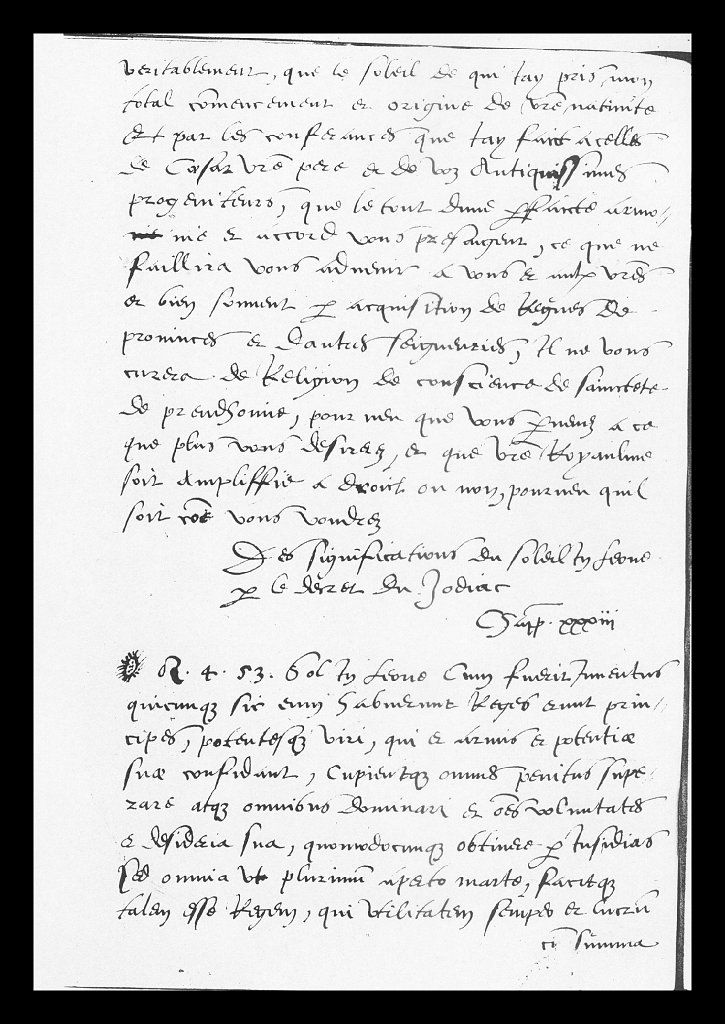 veritablement, que le soleil de qui Jay pris mon
total cōmencement et origine de vr̃e natiuite
Et par les conferances que Jay faict a celles
de Cæsar vr̃e pere et de voz Antiquissimes
progeniteurs, que le tout dune p̱faicte armo-
nie et accord vous presaigent, ce que ne
faillira vous aduenir a vous et aulx vr̃es
et bien souuent p̱ acquisition de Regnes de
prouinces et dautres seigneuries, Il ne vous
curera de Religion de conscience de sainctete
de preudhomie, pourueu que vous p̱uenez a ce
que plus vous desirez, et que vr̃e Royaulme
soit Ampliffie a droict ou non, pourueu quil
soit cōe vous vouldrez
Des significations du soleil In Leone
p̱ le decret du Zodiac
Chapp. xxxiii
R. 4. 53. Sol In Leone Cum fuerit Inuentus
quicunqꝫ sic enim habuerint Reges erunt prin-
cipes, potentesqꝫ viri, qui et armis et potentiæ
suæ confidant, Cupientqꝫ omnes penitus supe-
rare atqꝫ omnibus dominari et oẽs voluntates
et desideria sua, quomodocunqꝫ obtinere p̱ Insidias
Sed omnia vt plurimũ aperto marte, facitqꝫ
talem esse Regem, qui vtilitatem semper et lucrũ
cũ summa